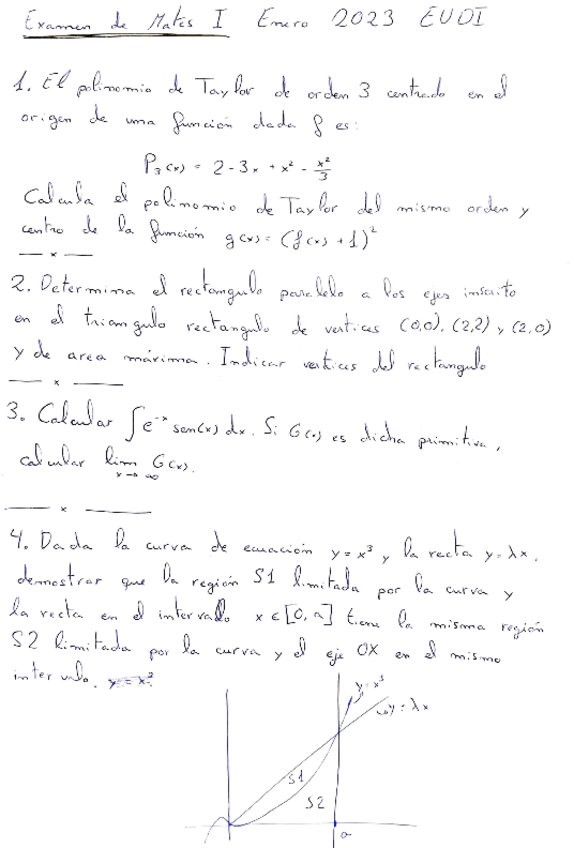 Examen de Mates I Enero 2023 EUDI
1. El polinomio de Taylor de orden 3 centrado en el
origen de una función dada f es:
P₃(x) = 2 - 3x + x² - x²/3
Calcula el polinomio de Taylor del mismo orden y
centro de la función g(x) = (f(x) + 1)²
— x —
2. Determina el rectangulo paralelo a los ejes inscrito
en el triangulo rectangulo de vertices (0,0), (2,2) y (2,0)
y de area máxima. Indicar vertices del rectangulo
— x —
3. Calcular ∫e⁻ˣ sen(x) dx. Si G(x) es dicha primitiva,
calcular lim G(x).
x→∞
— x —
4. Dada la curva de ecuación y = x³ y la recta y = λx.
demostrar que la región S1 limitada por la curva y
la recta en el intervalo x ∈ [0, a] tiene la misma región
S2 limitada por la curva y el eje OX en el mismo
intervalo. y = x²
y = x³
y = λx
S1
S2
a